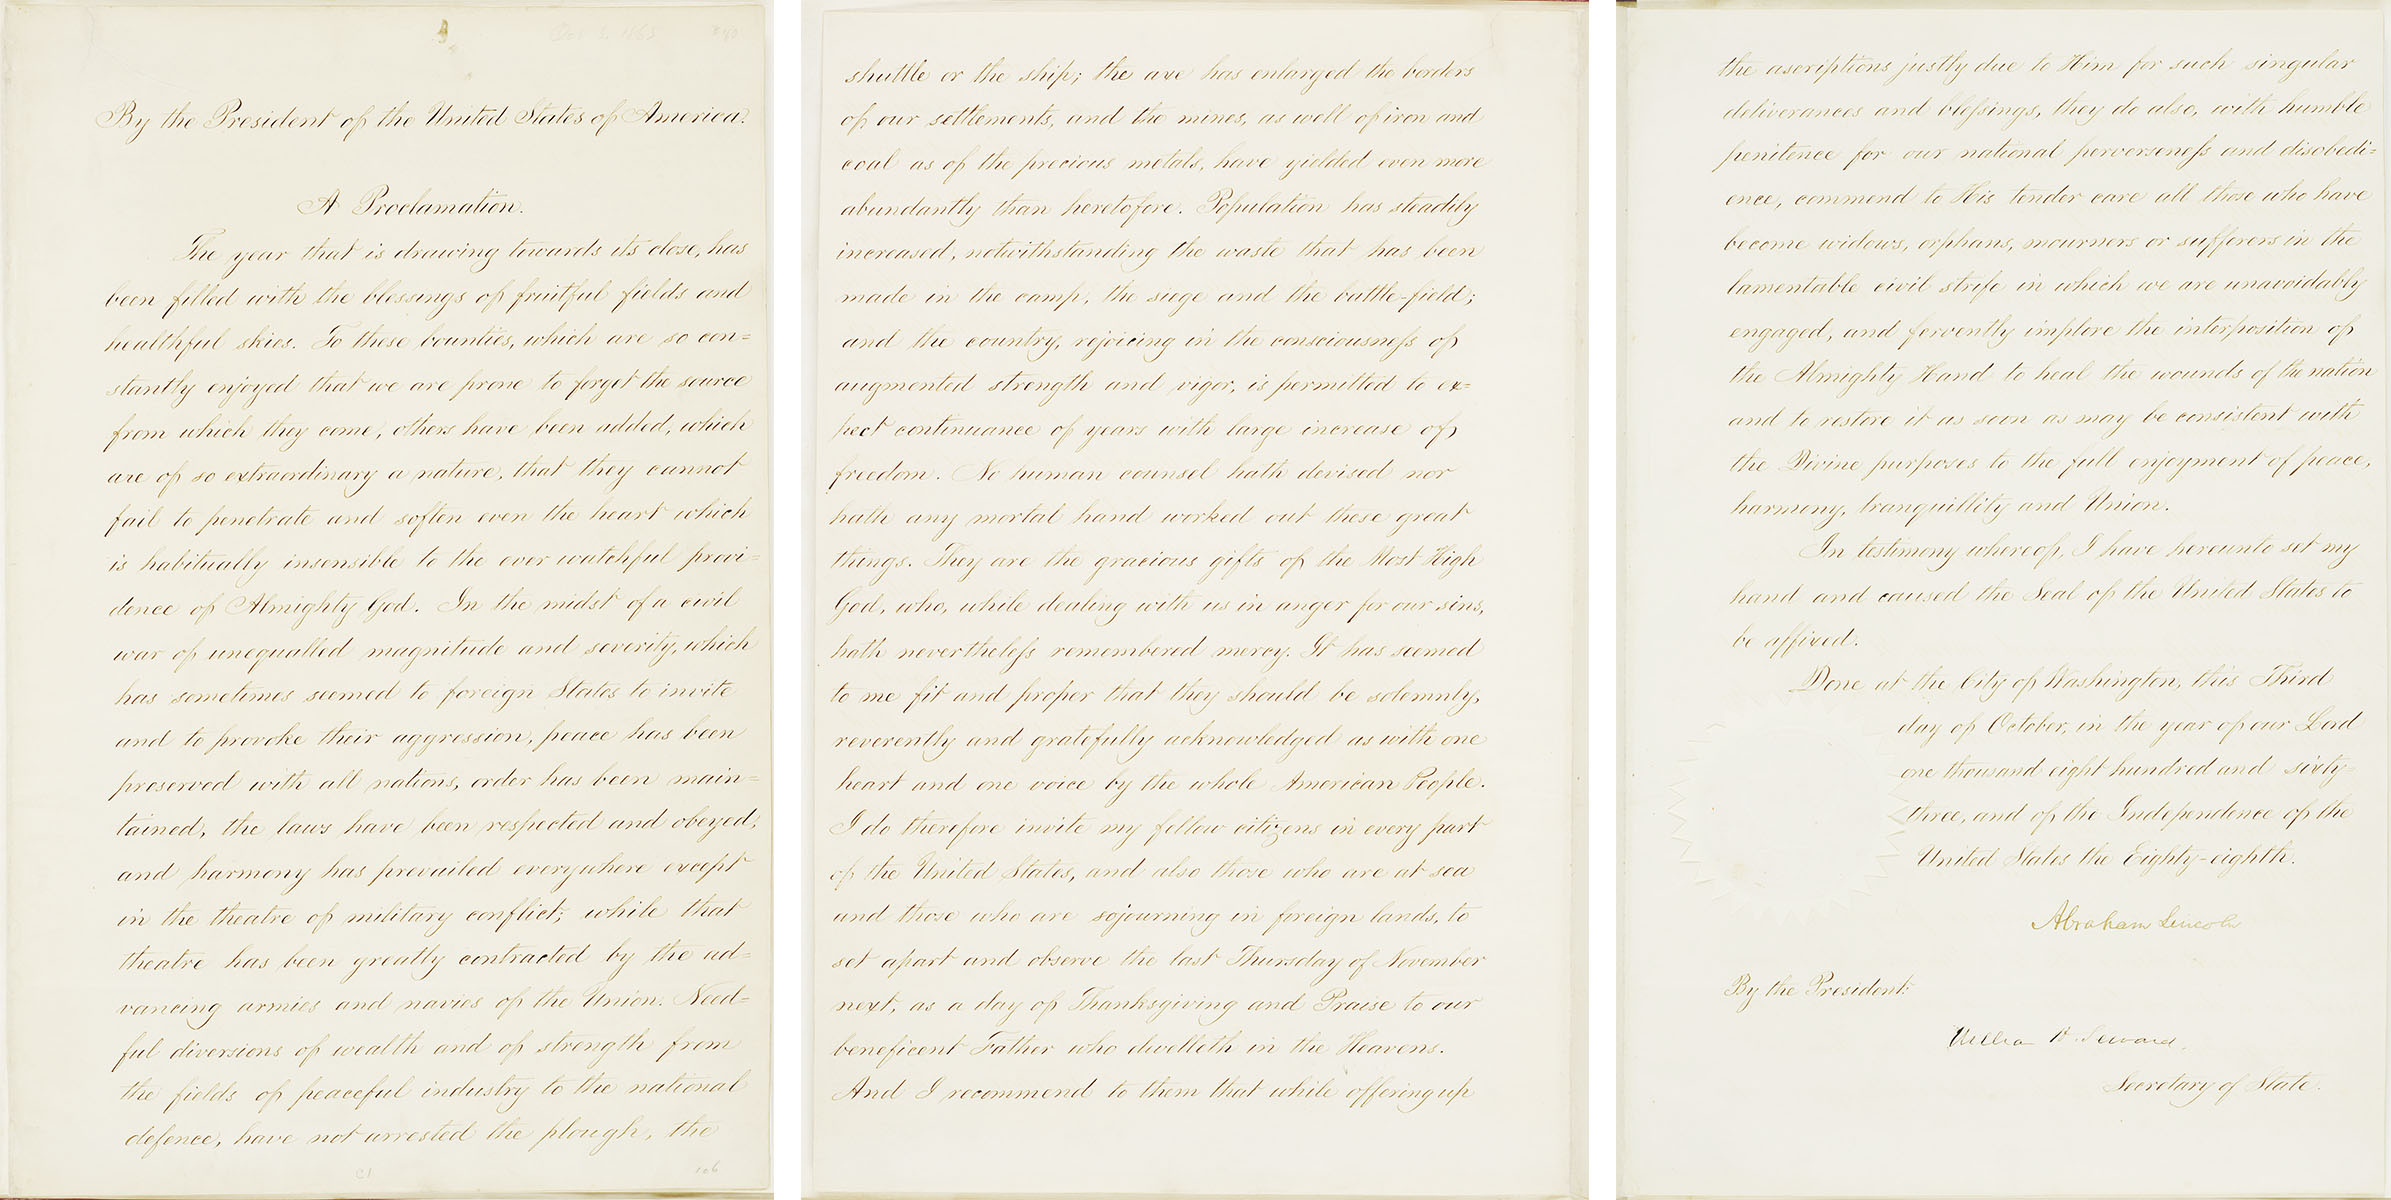 Oct 3. 1863
By the President of the United States of America.
A Proclamation.
The year that is drawing towards its close, has
been filled with the blessings of fruitful fields and
healthful skies. To these bounties, which are so con=
stantly enjoyed that we are prone to forget the source
from which they come, others have been added, which
are of so extraordinary a nature, that they cannot
fail to penetrate and soften even the heart which
is habitually insensible to the ever watchful provi=
dence of Almighty God. In the midst of a civil
war of unequalled magnitude and severity, which
has sometimes seemed to foreign States to invite
and to provoke their aggression, peace has been
preserved with all nations, order has been main=
tained, the laws have been respected and obeyed,
and harmony has prevailed everywhere except
in the theatre of military conflict; while that
theatre has been greatly contracted by the ad=
vancing armies and navies of the Union. Need=
ful diversions of wealth and of strength from
the fields of peaceful industry to the national
defence, have not arrested the plough, the
106
shuttle or the ship; the axe has enlarged the borders
of our settlements, and the mines, as well of iron and
coal as of the precious metals, have yielded even more
abundantly than heretofore. Population has steadily
increased, notwithstanding the waste that has been
made in the camp, the siege and the battle-field;
and the country, rejoicing in the consciousness of
augmented strength and vigor, is permitted to ex=
pect continuance of years with large increase of
freedom. No human counsel hath devised nor
hath any mortal hand worked out these great
things. They are the gracious gifts of the Most High
God, who, while dealing with us in anger for our sins,
hath nevertheless remembered mercy. It has seemed
to me fit and proper that they should be solemnly,
reverently and gratefully acknowledged as with one
heart and one voice by the whole American People.
I do therefore invite my fellow citizens in every part
of the United States, and also those who are at sea
and those who are sojourning in foreign lands, to
set apart and observe the last Thursday of November
next, as a day of Thanksgiving and Praise to our
beneficent Father who dwelleth in the Heavens.
And I recommend to them that while offering up
the ascriptions justly due to Him for such singular
deliverances and blessings, they do also, with humble
penitence for our national perverseness and disobedi=
ence, commend to His tender care all those who have
become widows, orphans, mourners or sufferers in the
lamentable civil strife in which we are unavoidably
engaged, and fervently implore the interposition of
the Almighty Hand to heal the wounds of the nation
and to restore it as soon as may be consistent with
the Divine purposes to the full enjoyment of peace,
harmony, tranquillity and Union.
In testimony whereof, I have hereunto set my
hand and caused the Seal of the United States to
be affixed.
Done at the City of Washington, this Third
day of October, in the year of our Lord
one thousand eight hundred and sixty-
three, and of the Independence of the
United States the Eighty-eighth.
Abraham Lincoln
By the President:
William H. Seward,
Secretary of State.